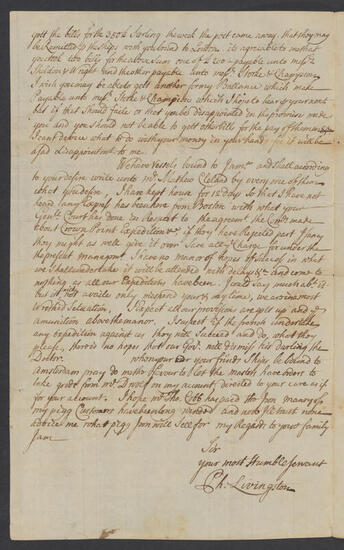 gott the bills for the 350£ Sterling the week the post came away that they may
be Remitted by the ships with you bound to London. its agreeable to me that
you took two bills for the above sum one of £200 payable unto messrs
Sheldon & Wright and the other payable unto messrs Storke & Champion
I wish you may be able to gett another for my Ballance which make
Payable unto messrs Storke & Champion which I hope to hear of by your next
but if that should faile or that you be disapointed in the promise made
you and you should not be able to gett other bills for the pay of them
I cant devise what to do with your money in your hands for it will be
a sad disapointment to me
We have Vessels bound to Jama and shall according
to your desire write unto mr Mathew Cleland by every one of them
what you desire, I have kept house for 12 days so that I have not
heard any Express has been here from Boston with what your
Genll Court has done in Respect to the agreement the Comrs made
about Crown Point Expedition &c if they have Rejected part I say
they might as well give it over & save all ye Charge for under the
the present managmt I have no manor of hopes of success in what
we shall undertake it will be attended with delays &c and come to
nothing as all our Expeditions have been. I could say much abt it
but it will not availe only mispend your & my time, we are in a most
wretched Situation, I expect all our provisions are gott up and
amunition above the manor. I suspect if the french undertake
any expedition against us they will succeed and do what they
please, there is no hopes that our Govr will dismiss his darling the
Docter. when you or your friends ships be bound to
Amsterdam may do me the favour to Let the masters have orders to
take goods from mr Dwolf on my account directed to your care as if
for your account. I hope mr Tho. Cobb has paid the Iron money of
my pigg Customers have been long indebted and not to be trust none
advice me what pigg Iron will sell for my Regards to your family
I am
Sir
your most Humble servant
Ph: Livingston